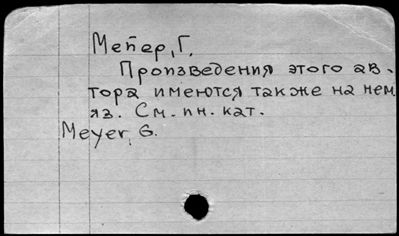 Мейер, Г.
Произведения этого ав-
тора имеются также на нем.
яз. См. ин. кат.
Meyer, G.